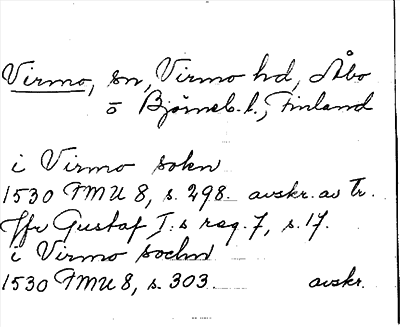 Virmo, sn, Virmo hd, Åbo
o Björneb. l., Finland
i Virmo sokn
1530 FMU 8, s. 298 avskr. av Tr.
Jfr Gustaf I:s reg. 7, s. 17.
i Virmo sochn
1530 FMU 8, s. 303 avskr.